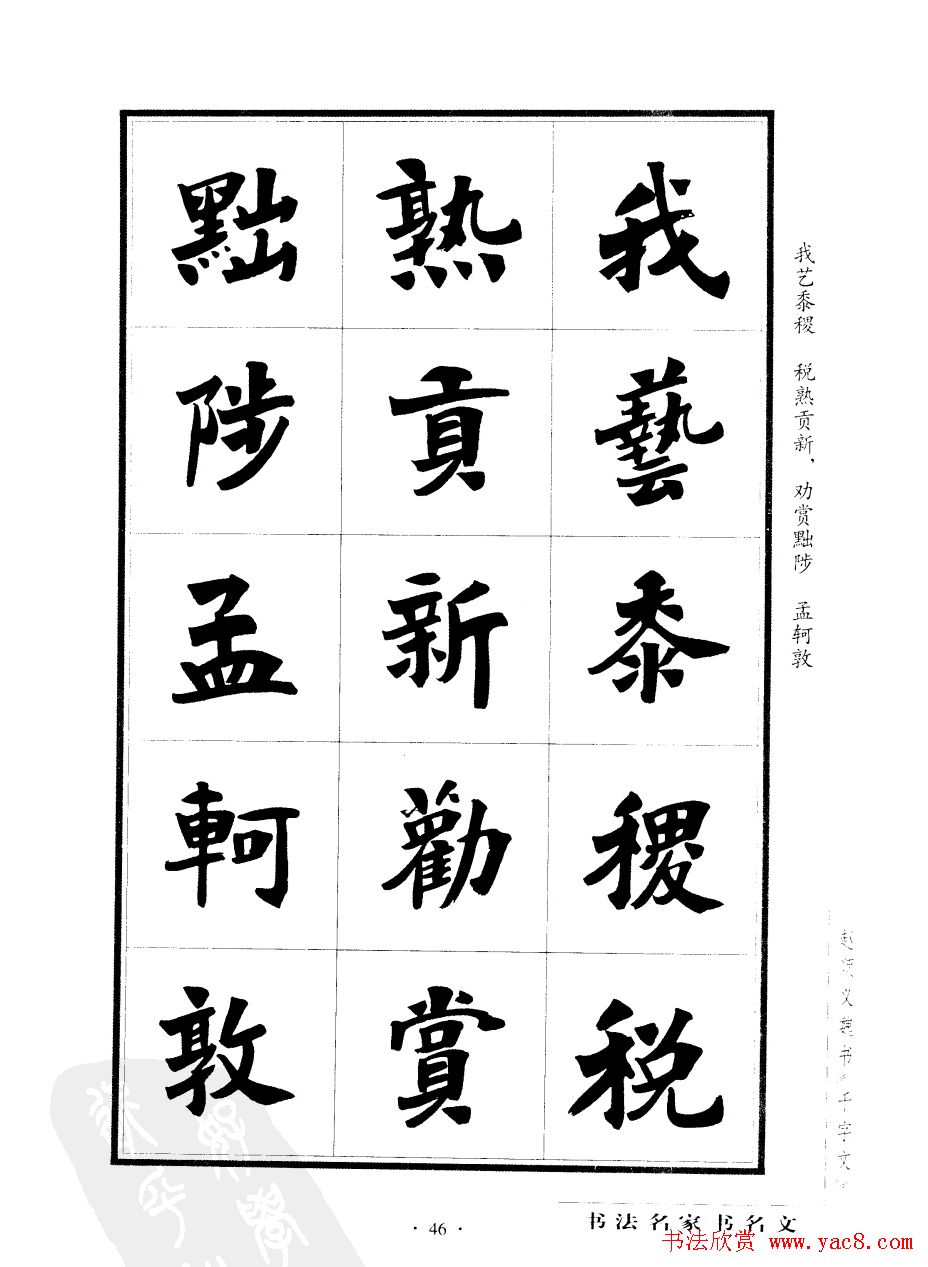 我藝黍稷稅
熟貢新勸賞
黜陟孟軻敦
我艺黍稷 税熟贡新，劝赏黜陟 孟轲敦
魏书《千字文
书法名家书名文
· 46 ·
书法欣赏 www.yac8.com